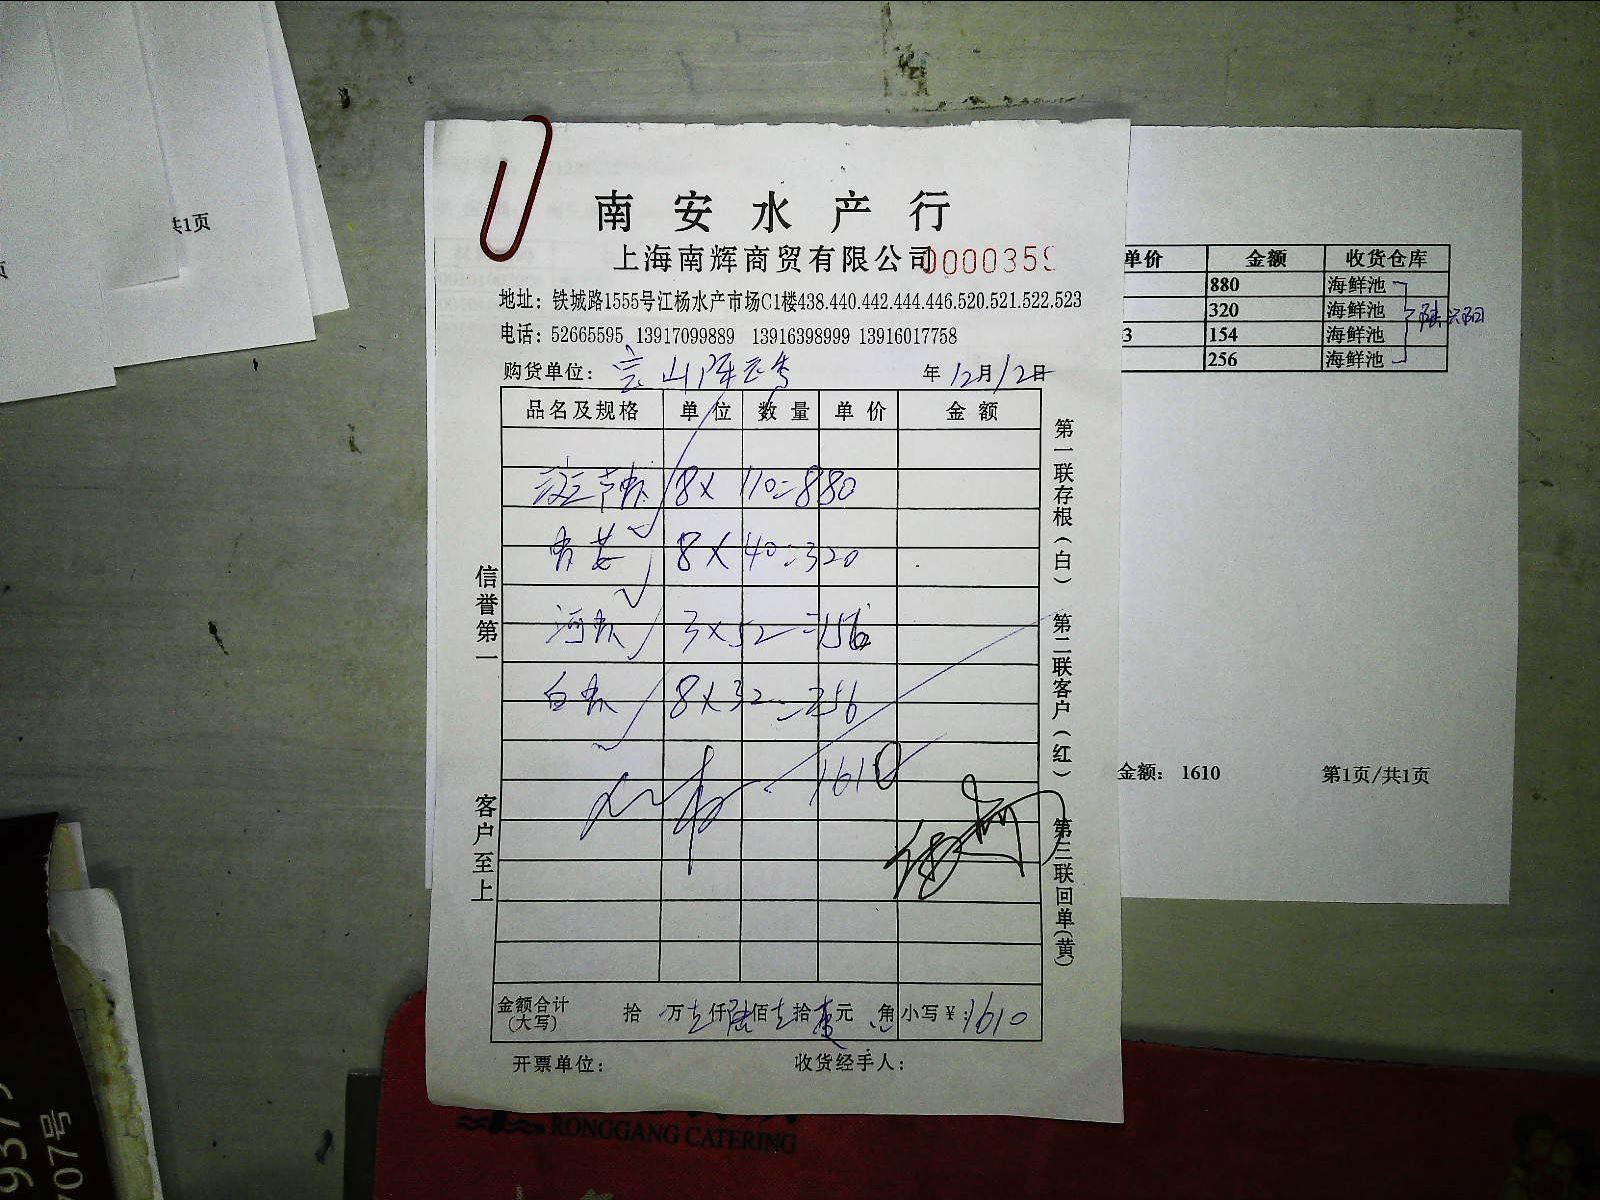 共1页
页
南安水产行
上海南辉商贸有限公司 0000359
地址：铁城路1555号江杨水产市场C1楼438.440.442.444.446.520.521.522.523
电话：52665595 13917099889 13916398999 13916017758
购货单位： 年12月12日
品名及规格 单位 数量 单价 金额
斑节虾 8X 110=880
8X40=320
河虾 3X52=156
白虾 8X32=256
1610
金额合计(大写) 拾 万 仟陆佰 拾 元 角 小写￥：1610
开票单位： 收货经手人：
信誉第一
客户至上
第一联存根(白) 第二联客户(红) 第三联回单(黄)
单价 金额 收货仓库
880 海鲜池
320 海鲜池
3 154 海鲜池
256 海鲜池
金额： 1610 第1页/共1页
RONGGANG CATERING
707号